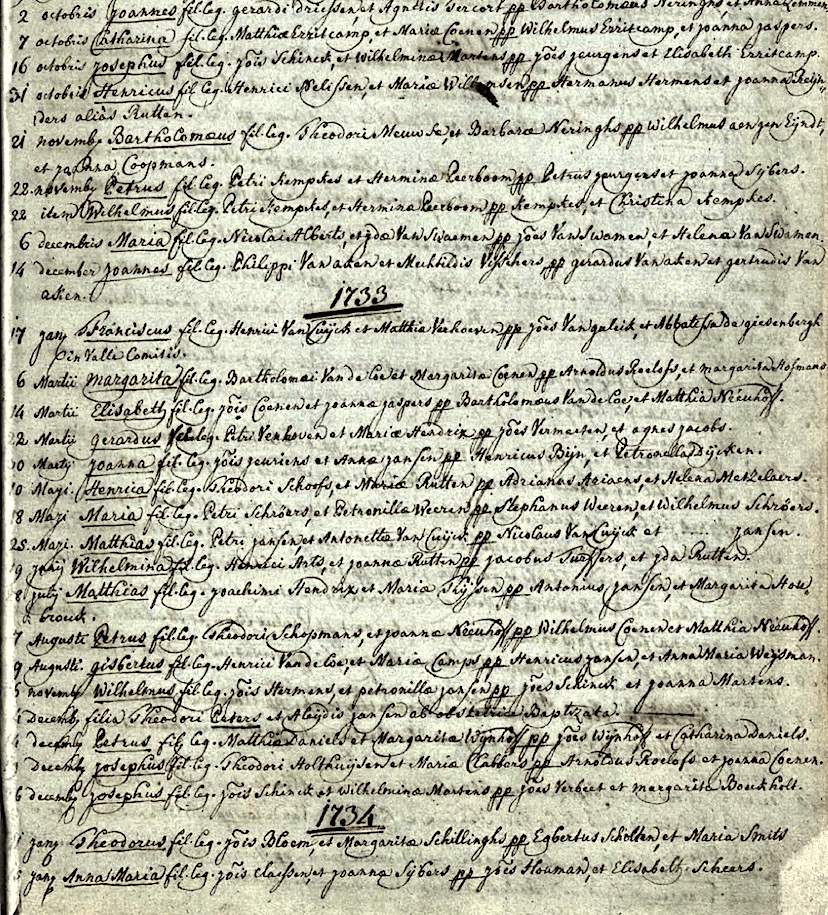 2 octobris Joannes fil. leg. gerardi driessen, et Agnetis sercort pp Bartholomæus Neringhs et Anna
7 octobris Catharina fil. leg. Matthiæ Erritcamp, et Mariæ Coenen pp Wilhelmus Erritcamp, et joanna jaspers.
16 octobris josephus fil. leg. jõis Schinck, et Wilhelminæ Martens pp jões jeurgens et Elisabeth Erritcamp.
31 octobris Henricus fil. leg. Henrici Nelissen, et Mariæ pp Hermanus Hermens et joanna Reijn-
ders aliàs Rutten.
21 novemb Bartholomæus fil. leg. Theodori Meuwse, et Barbaræ Neringhs pp Wilhelmus aengen Eijndt,
et joanna Coopmans.
22 novemb Petrus fil leg. Petri Kempkes et Herminæ Peerboom pp Petrus jeurgens et joanna Sijbers.
22 item Wilhelmus fil. leg. Petri Kempkes, et Herminæ Peerboom pp Kempkes, et Christina Kempkes.
6 decembris Maria fil. leg. Nicolai Alberts, et ydæ Van Swaemen pp jões Van Swamen, et Helena Van Swamen.
14 december joannes fil. leg. Philippi Van aken et Mechtildis Visschers pp gerardus Van aken et gertrudis Van
aken.
1733
17 janij Franciscus fil. leg. Henrici Van Cuijck et Matthiæ Verhoeven pp jões Van gulick, et Abbatissa de giesenbergh
in Valle Comitis.
6 Martii margarita fil. leg. Bartholomæi Van de Coe et Margaritæ Coenen pp Arnoldus Roelofs, et margarita Hofmans
14 Martii Elisabeth fil. leg. jõis Coenen et joannæ jaspers pp Bartholomæus Van de Coe, et Matthia Nieuhoff.
22 Martij gerardus fil leg. Petri Venhoven et Mariæ Hendrix pp jões Vermeeten, et agnes jacobs.
0 Martij joanna fil. leg. jõis jeuriens et Annæ jansen pp Henricus Bijn, et Petronella Dijcken.
0 Maji. Henrica fil. leg. Theodori Schoofs, et Mariæ Rutten pp Adrianus Ariaens, et Helena Metzelaers.
18 Maji Maria fil. leg. Petri Schröers, et Petronillæ Weeren pp Stephanus Weeren, et Wilhelmus Schröers.
25. Maji. Matthias fil. leg. Petri jansen, et Antonettæ Van Cuijck pp Nicolaus Van Cuijck et ..... jansen.
9 junij Wilhelmina fil leg. Henrici Ants, et joannæ Rutten pp jacobus et yda Rutten.
8 julij Matthias fil. leg. joachimi Hendrix, et Mariæ Thijssen pp Antonius jansen, et Margarita Hou-
broeck.
7 Augusti Petrus fil. leg. Theodori Schopmans, et joannæ Nieuhoff pp Wilhelmus Coenen et Matthia Nieuhoff.
9 Augusti. gisbertus fil. leg. Henrici Van de Coe, et Mariæ Camps pp Henricus jansen, et Anna Maria Weijsman.
5 novemb Wilhelmus fil. leg. jõis Hermens, et petronillæ jansen pp jões Schinck et joanna Martens.
decemb filia Theodori Peters et Aleydis jansen ab obstetrice Baptizata.
4 decemb Petrus fil leg. Matthiæ Daniels et Margaritæ Wijnhoff pp jões Wijnhoff et Catharina Daniels.
decemb josephus fil. leg. Theodori Holthuijsen et Mariæ Clabbers pp Arnoldus Roelofs et joanna Coenen.
6 decemb josephus fil. leg. jõis Schinck et Wilhelminæ Martens pp jões Verbeet et margarita Boeckholt.
1734
janij Theodorus fil. leg. jõis Bloem, et Margaritæ Schillinghs pp Egbertus Scholten, et Maria Smits
janij Anna Maria fil. leg. jõis Claessen, et joannæ Sijbers pp jões Houman, et Elisabeth Scheers.